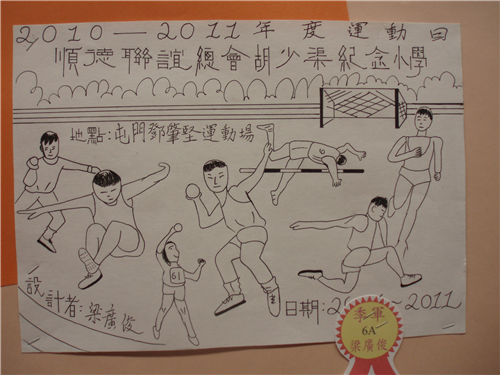 2010—2011年度運動日
順德聯誼總會胡少渠紀念小學
地點:屯門鄧肇堅運動場
61
設計者:梁廣俊
日期:
2011
季軍
6A
梁廣俊